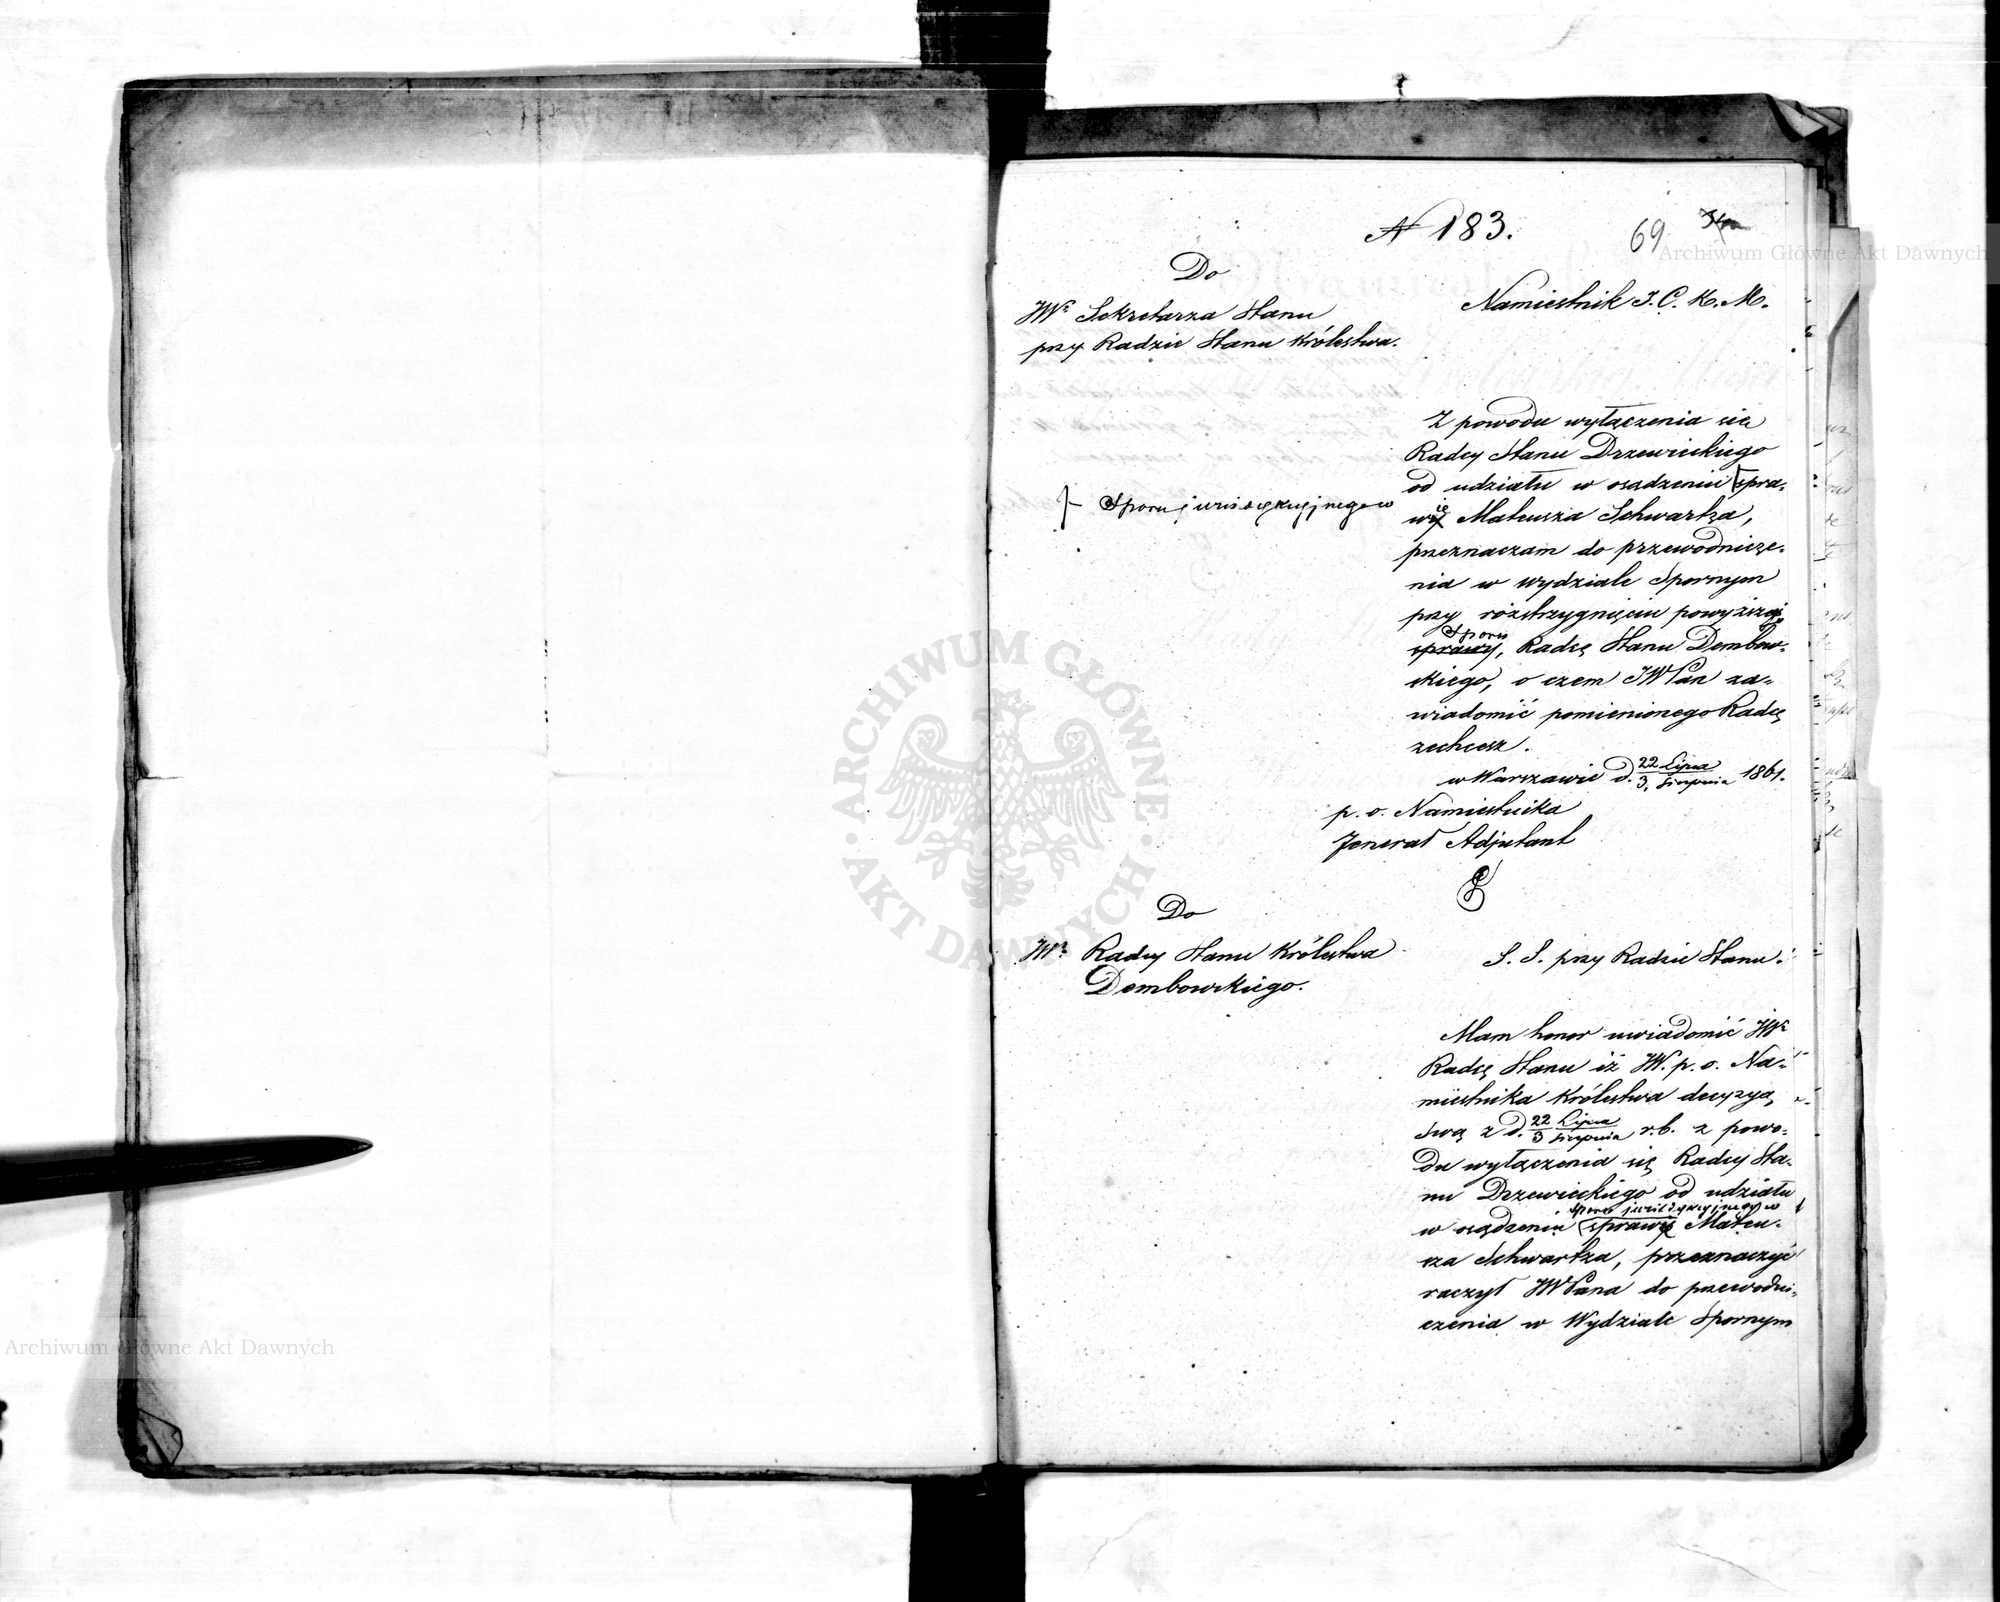 N 183.
69
Do
JWo Sekretarza Stanu
przy Radzie Stanu Królestwa.
Namiestnik J. C. K. M.
Z powodu wyłączenia się
Radcy Stanu Drzewieckiego
od udziału w osądzeniu spra-
wie Mateusza Schwartza,
Sporu jurisdykcyjnego w
przeznaczam do przewodnicze-
nia w wydziale Spornym
przy rozstrzygnięciu powyższego
Sporu
sprawy, Radcę Stanu Dembow-
skiego, o czem JWPan za-
wiadomić pomienionego Radcę
zechcesz.
w Warszawie d. 22 Lipca / 3 Sierpnia 1861.
p. o. Namiestnika
Jenerał Adjutant
Do
JWo Radcy Stanu Królestwa
Dembowskiego.
S. S. przy Radzie Stanu.
Mam honor uwiadomić JWo
Radcę Stanu iż JW. p. o. Na-
miestnika Królestwa decyzyą
swą z d. 22 Lipca / 3 Sierpnia r. b. z powo-
du wyłączenia się Radcy Sta-
nu Drzewieckiego od udziału
sporu jurisdykcyjnego w
w osądzeniu sprawie Mateu-
sza Schwartza, przeznaczyć
raczył JWPana do przewodni-
czenia w Wydziale Spornym
ARCHIWUM GŁÓWNE AKT DAWNYCH
Archiwum Główne Akt Dawnych
Archiwum Główne Akt Dawnych